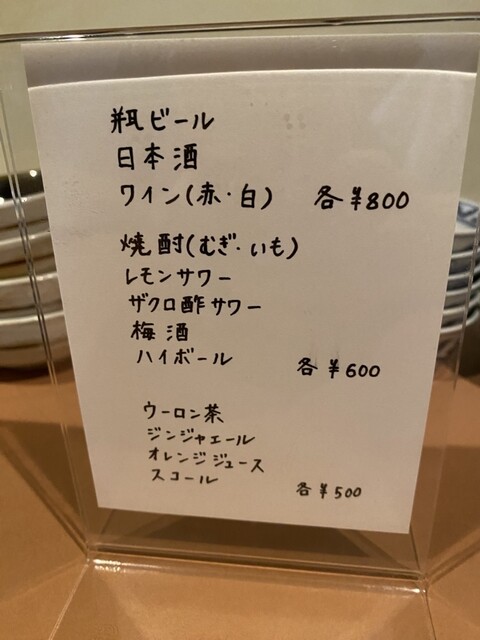 瓶ビール
日本酒
ワイン(赤・白) 各¥800
焼酎(むぎ・いも)
レモンサワー
ザクロ酢サワー
梅酒
ハイボール 各¥600
ウーロン茶
ジンジャエール
オレンジジュース
スコール 各¥500